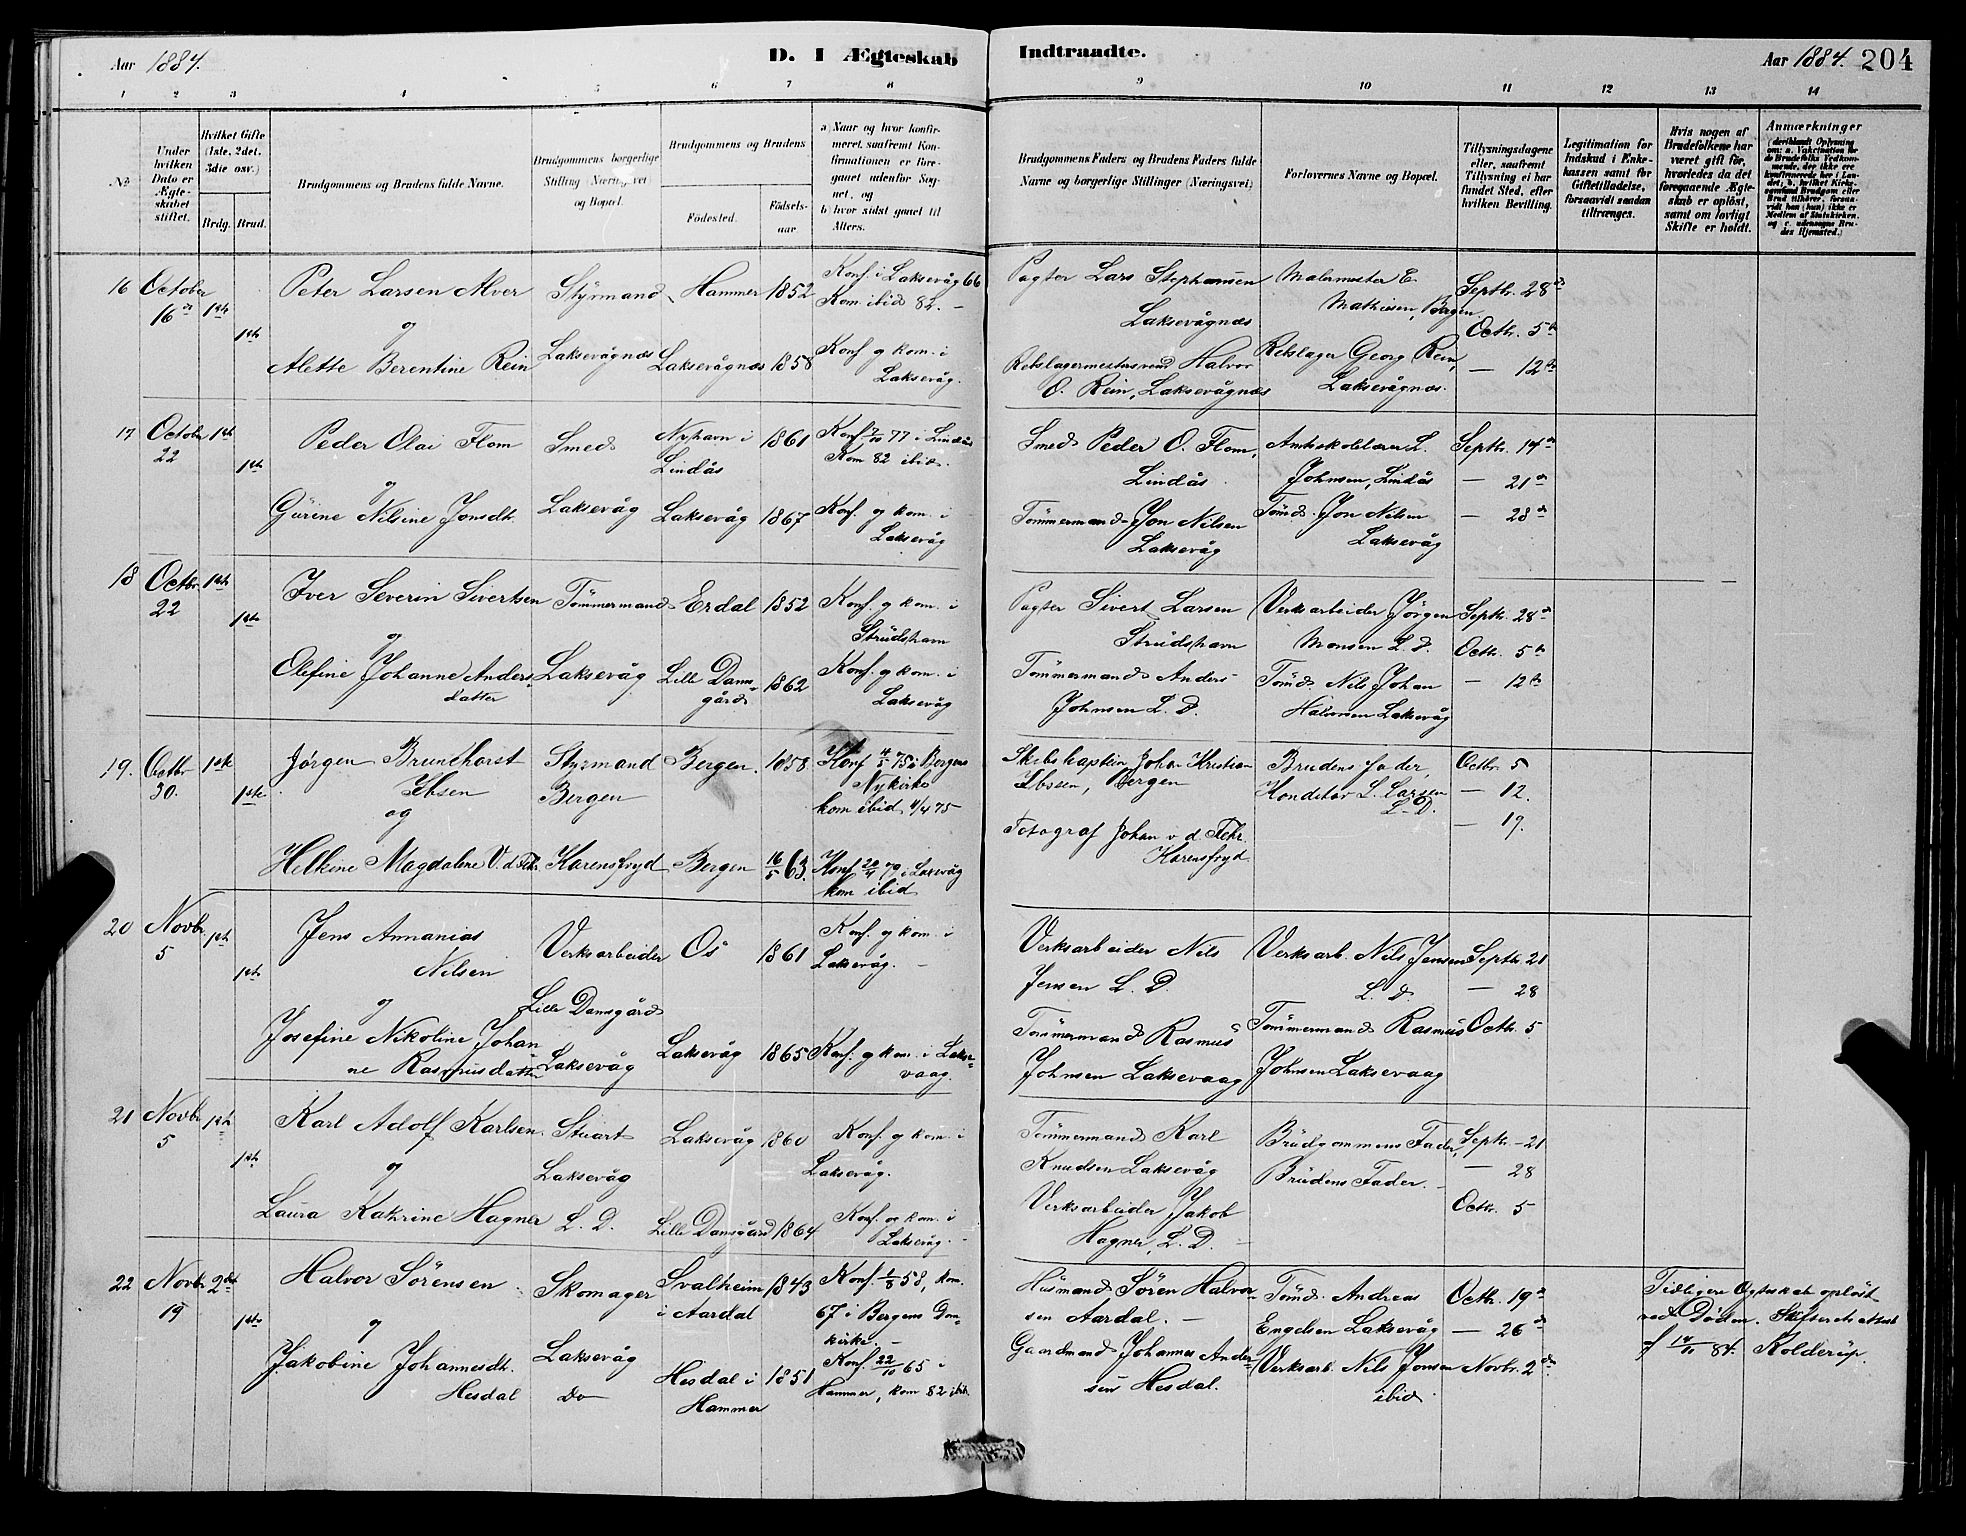 Aar 1884.
D. I Ægteskab Indtraadte.
Aar 1884. 204
1 2 3 4 5 6 7 8 9 10 11 12 13 14
No
Under hvilken Dato er Ægteskabet stiftet.
Hvilket Gifte (1ste, 2det, 3die osv.)
Brdg. Brud.
Brudgommens og Brudens fulde Navne.
Brudgommens borgerlige Stilling (Næringsvei) og Bopæl.
Brudgommens og Brudens
Fødested. Fødselsaar.
a) Naar og hvor konfirmeret, saafremt Konfirmationen er foregaaet udenfor Sognet, og
b) hvor sidst gaaet til Alters.
Brudgommens Faders og Brudens Faders fulde Navne og borgerlige Stillinger (Næringsvei)
Forlovernes Navne og Bopæl.
Tillysningsdagene eller, saafremt Tillysning ei har fundet Sted, efter hvilken Bevilling.
Legitimation for Indskud i Enkekassen samt for Giftetilladelse, forsaavidt saadan tiltrænges.
Hvis nogen af Brudefolkene har været gift før, hvorledes da det foregaaende Ægteskab er opløst, samt om lovligt Skifte er holdt.
Anmærkninger (deriblandt Oplysning om: a. Vakcination for de Brudefolks Vedkommende, der ikke ere konfirmerede her i Landet; b. hvilket Kirkesamfund Brudgom eller Brud tilhører, forsaavidt han (hun) ikke er Medlem af Statskirken, og c. udensogns Brudes Hjemsted.)
16 October 16de 1ste 1ste
Peter Larsen Alver
og
Alette Berentine Rein
Styrmand
Laksevågnæs
Hammer 1852
Laksevågnæs 1858
Konf. i Laksevåg 66
Kom ibid 82. -
Konf. og kom. i
Laksevåg.
Pagter Lars Stephansen
Laksevågnæs
Rebslagermestersvend Halvor
O. Rein, Laksevågnæs
Malermester E.
Mathisen, Bergen
Rebslager Georg Rein,
Laksevågnæs.
Septbr. 28de
Octbr. 5te
— 12te
17 October 22 1ste 1ste
Peder Olai Flom
og
Gurine Nilsine Jonsdtr.
Smed
Laksevåg
Nyhavn i
Lindås 1861
Laksevåg 1867
Konf. 77 i Lindås
Kom 82 ibid.
Konf. og kom. i
Laksevåg
Smed Peder O. Flom,
Lindås
Tømmermand Jon Nilsen
Laksevåg
Amtskolelærer L.
Johnsen, Lindås
Tømd. Jon Nilsen
Laksevåg
Septbr. 14de
— 21de
— 28de
18 Octbr. 22 1ste 1ste
Iver Severin Sivertsen
og
Olefine Johanne Anders-
datter
Tømmermand
Laksevåg
Erdal 1852
Lille Dams-
gård 1862
Konf. og kom. i
Strudshavn
Konf. og kom. i
Laksevåg
Pagter Sivert Larsen
Strudshavn
Tømmermand Anders
Johnsen L. D.
Verksarbeider Jörgen
Monsen L. D.
Tømd. Nils Johan
Halvorsen Laksevåg
Septbr. 28de
Octbr. 5te
— 12te
19. Octbr 30. 1ste 1ste
Jørgen Brunchorst
Ibsen
og
Helkine Magdalene V. d. Fehr.
Styrmand
Bergen
Karensfryd
Bergen. 1858.
Bergen 16/5 63.
Konf 4/4 75 i Bergens
Nykirke
kom ibid 11/4 75
Konf i Laksevåg
kom ibid
Skibskaptein Johan Kristian
Ibsen, Bergen
Fotograf Johan v. d. Fehr.
Karensfryd
Brudens fader,
Konditor L. Larsen
L. D.
Octbr. 5
— 12.
— 19.
20 Novbr. 5 1ste 1ste
Jens Annanias
Nilsen
og
Josefine Nikoline Johan
ne Rasmusdatter
Verksarbeider
Lille Damsgård
Laksevåg
Os 1861
Laksevåg 1865
Konf. og kom. i
Laksevåg. -
Konf. og kom. i Lakse-
vaag.
Verksarbeider Nils
Jensen L. D.
Tømmermand Rasmus
Johnsen Laksevaag
Verksarb. Nils Jensen
L. D.
Tømmermand Rasmus
Johnsen Laksevaag
Septbr. 21
— 28
Octbr. 5
21 Novbr 5 1ste 1ste
Karl Adolf Karlsen
og
Laura Kathrine Hagner
Stuart
Laksevåg
L. D.
Laksevåg 1860
Lille Damsgård 1864
Konf. og kom. i
Laksevåg.
Konf. og kom. i
Laksevåg.
Tømmermand Karl
Knudsen Laksevåg
Verksarbeider Jakob
Hagner, L. D.
Brudgommens Fader,
Brudens Fader.
Septbr. 21
— 28
Octbr. 5
22 Novbr 19 2det 1ste
Halvor Sörensen
og
Jakobine Johannesdtr.
Hesdal
Skomager
Laksevåg
Do
Svalheim
i Aardal 1843
Hesdal i
Hammer 1851
Konf. 1/8 58, kom.
67 i Bergens Dom-
kirke. -
Konf. 22/10 65 i
Hammer, kom 82 ibid
Husmand Sören Halvor-
sen Aardal. -
Gaardmand Johannes Ander-
sen Hesdal.
Tømd. Andreas
Engelsen Laksevåg
Verksarb. Nils Jonsen
ibid.
Octbr. 19de
— 26de
Novbr. 2den
Tidligere Ægteskab opløst
ved Døden. Skifteretsattest
af 14/11 84. Kolderup.